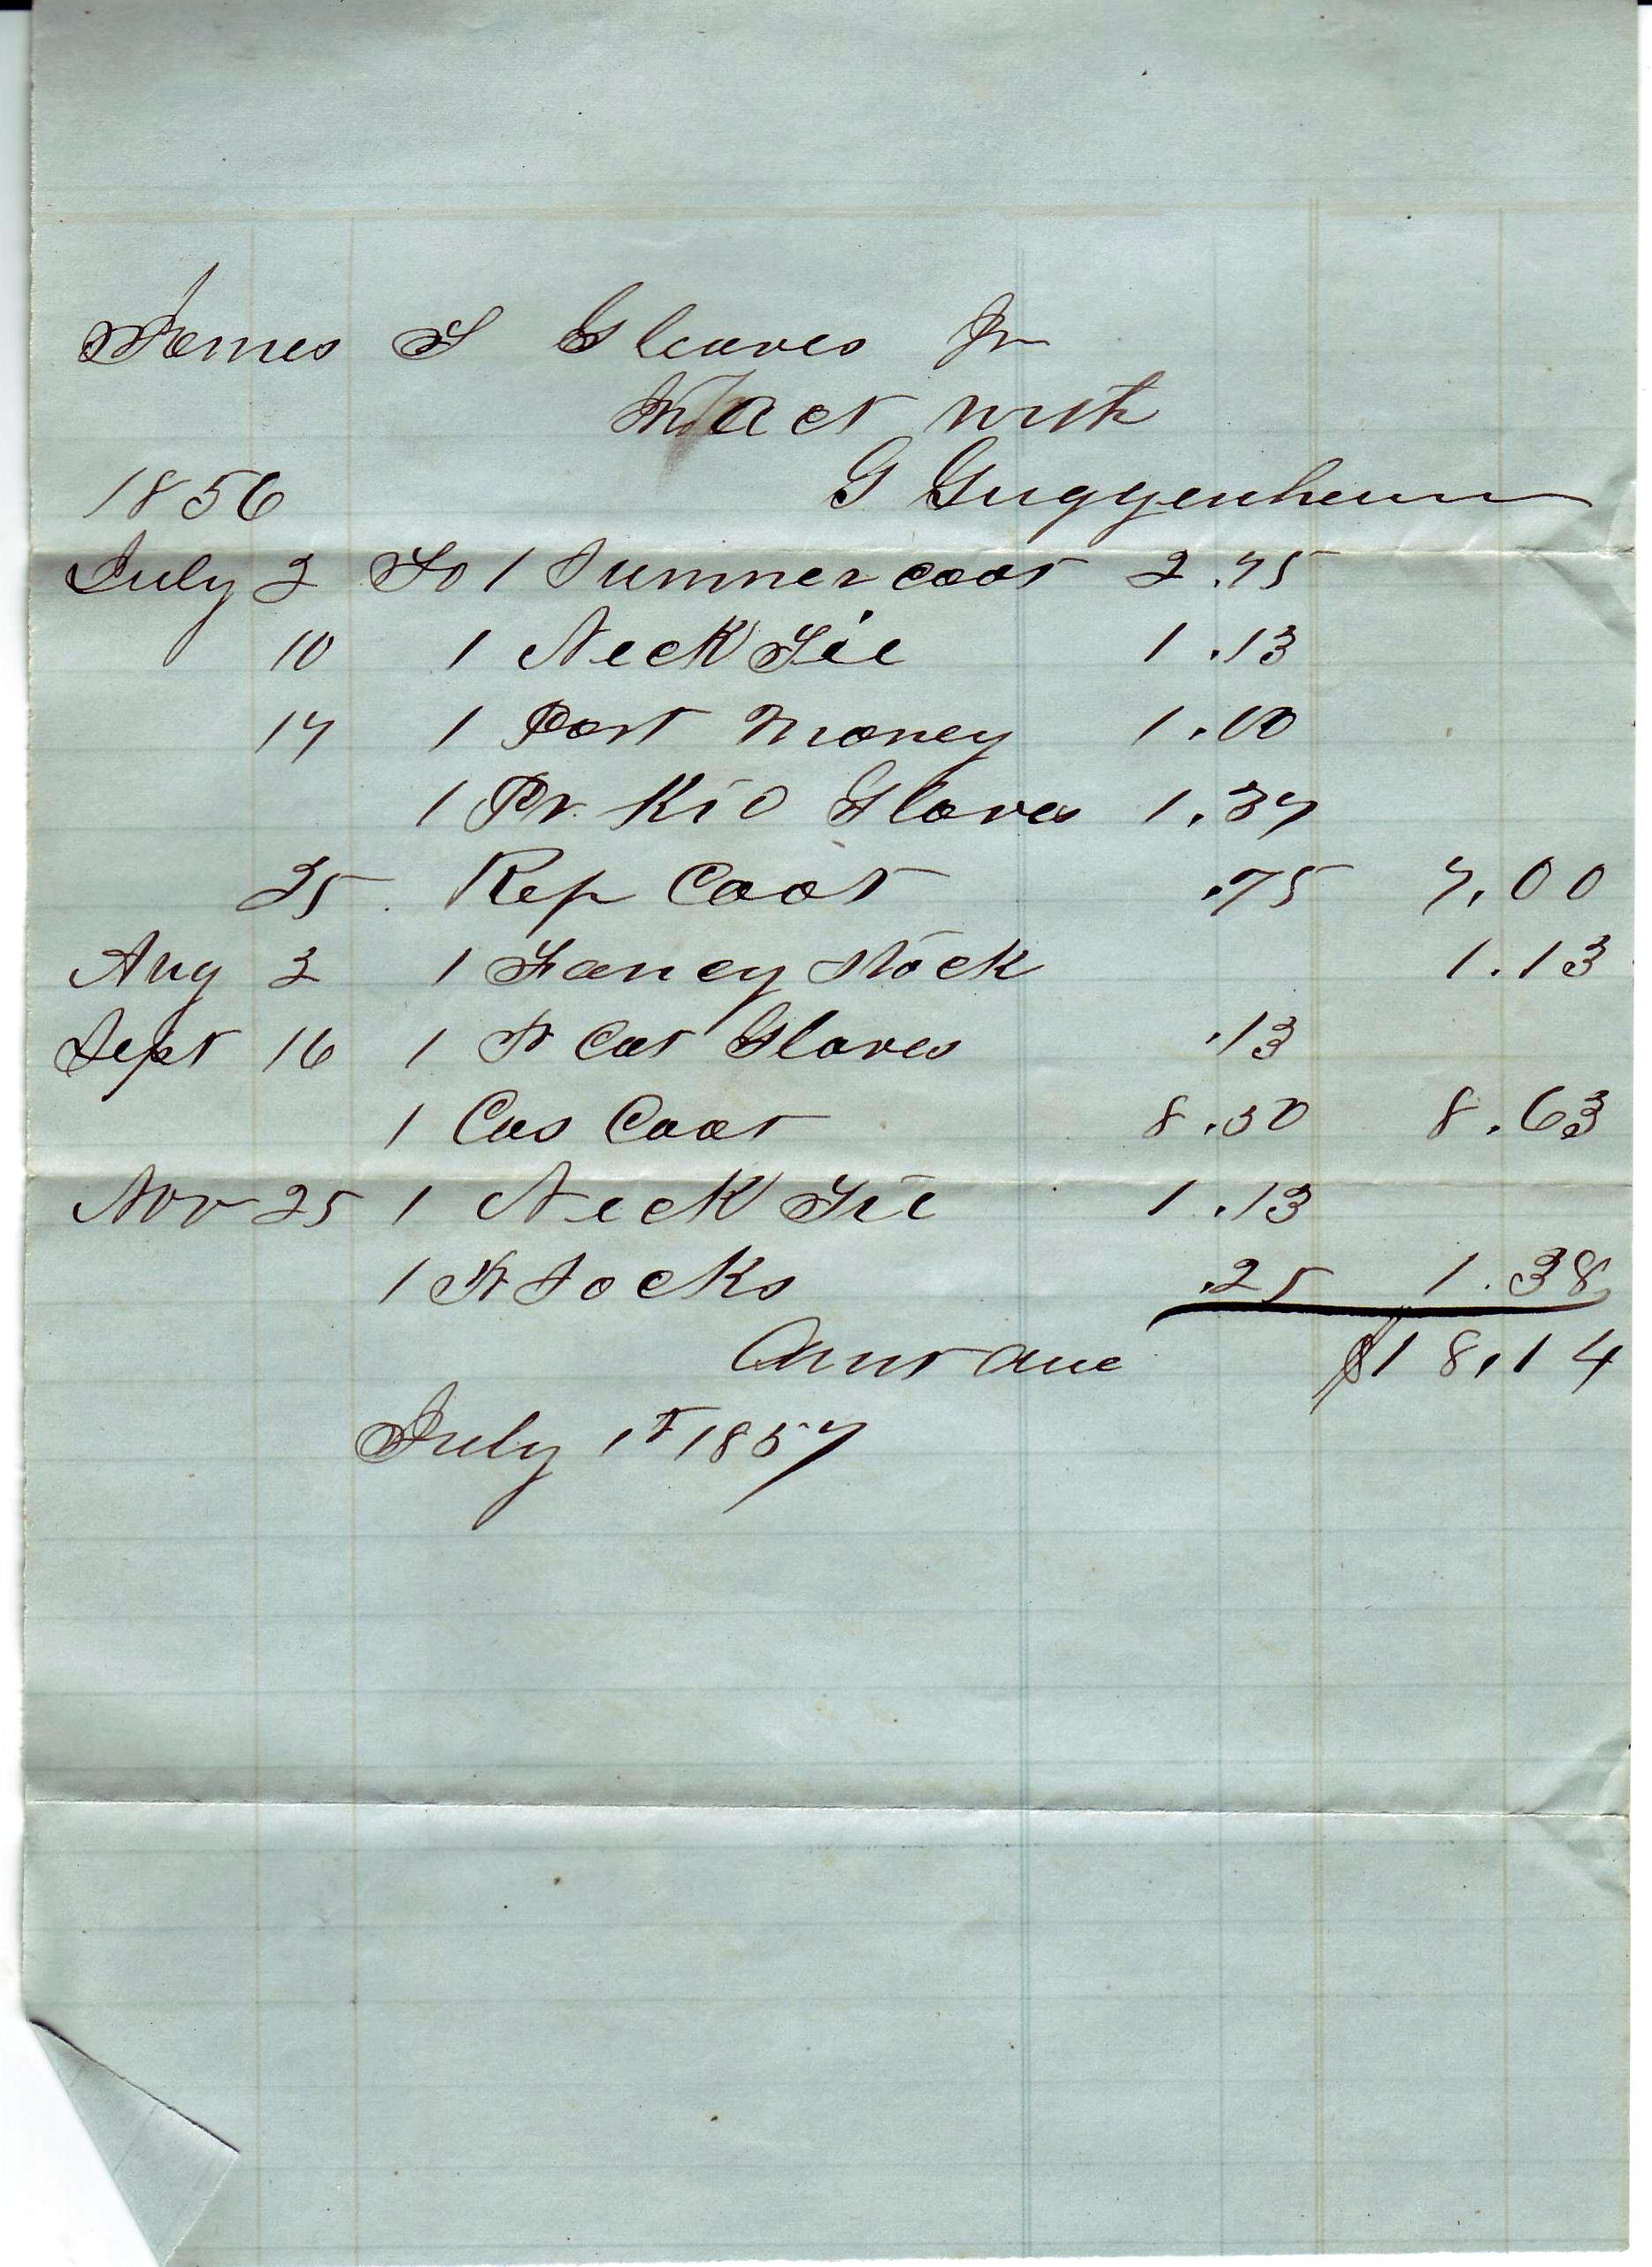 James T Gleaves Jr
In Act with
G Guggenheim
1856
July 2 To 1 Summer coat 2.75
10 1 Neck Tie 1.13
17 1 Port Money 1.00
1 Pr. Kid Gloves 1.37
25 Rep Coat .75 7.00
Aug 2 1 Fancy Stock 1.13
Sept 16 1 Pr Cot Gloves .13
1 Cas Coat 8.50 8.63
Nov 25 1 Neck Tie 1.13
1 Pr Socks .25 1.38
Amt due $18.14
July 1st 1857